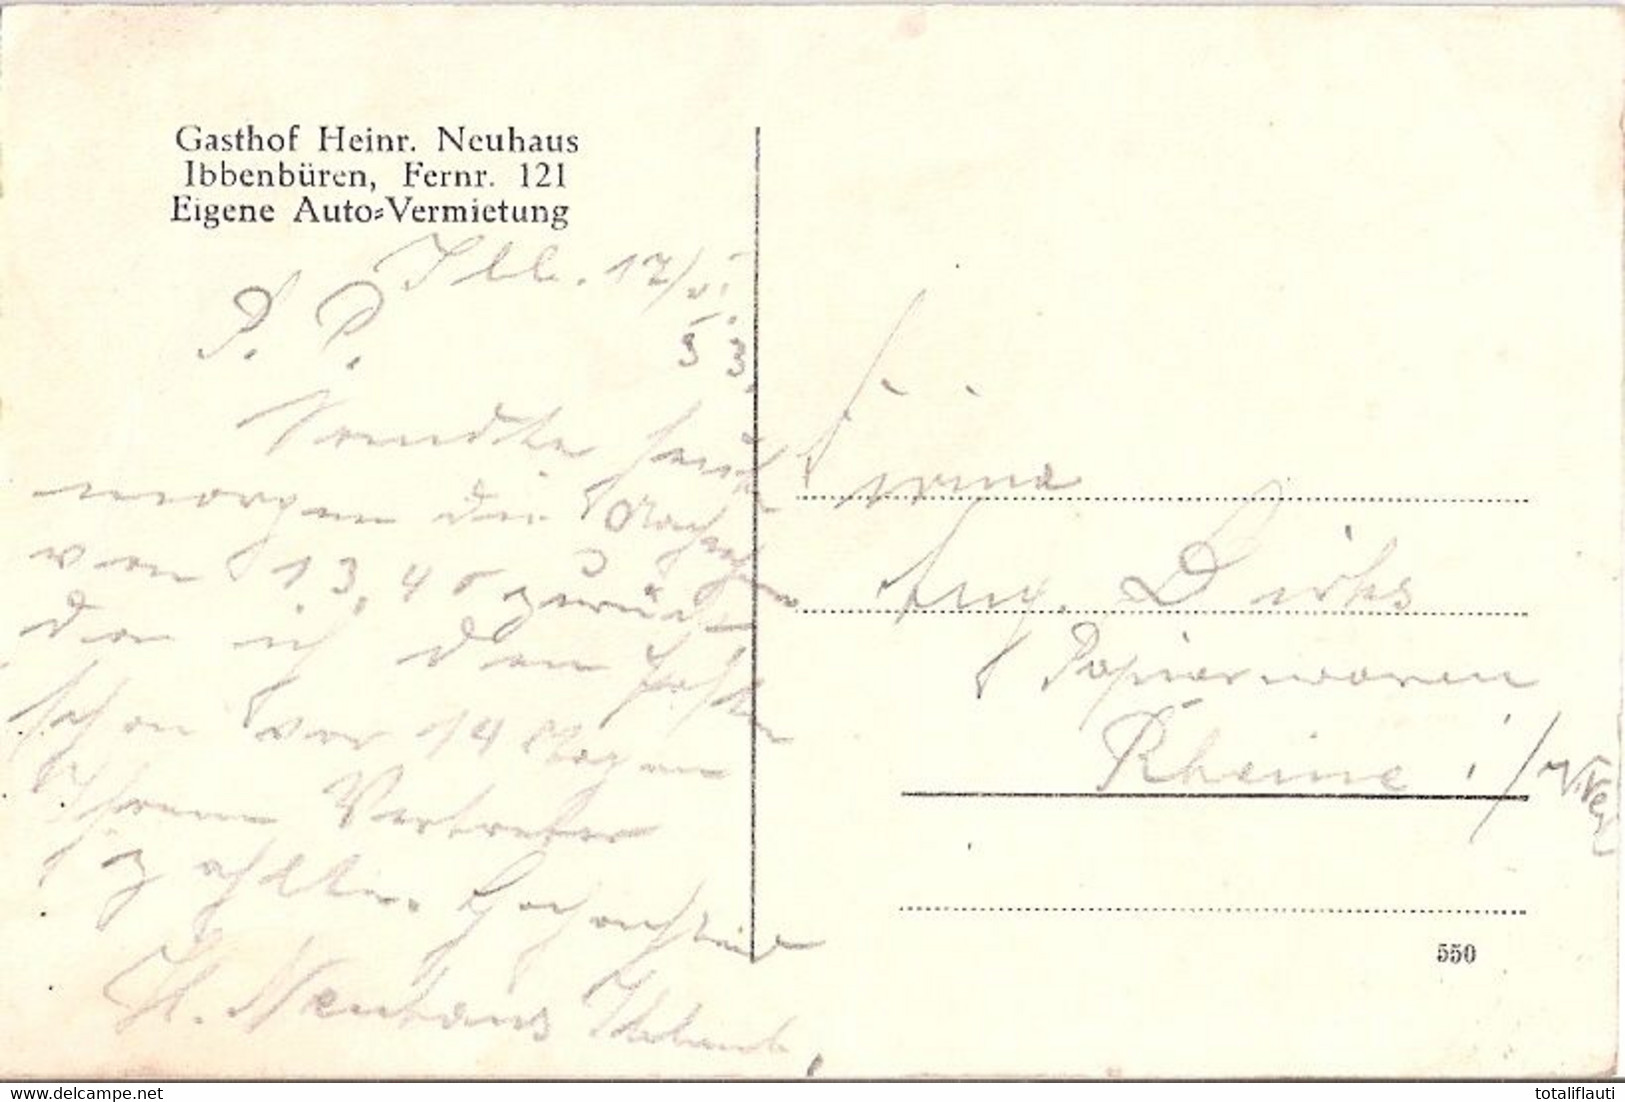 Gasthof Heinr. Neuhaus
Ibbenbüren, Fernr. 121
Eigene Auto-Vermietung
Ibb. 17/VI.
33.
P. P.
Sandte heute
morgen die Nachnahme
von 13,40 zurück
da ich den Posten
schon vor 14 Tagen
Ihrem Vertreter
zahlte. Hochachtend
H. Neuhaus Ibbenb.
Firma
Aug. Dirks
Papierwaren
Rheine i/
550
delcampe.net
totaliflauti